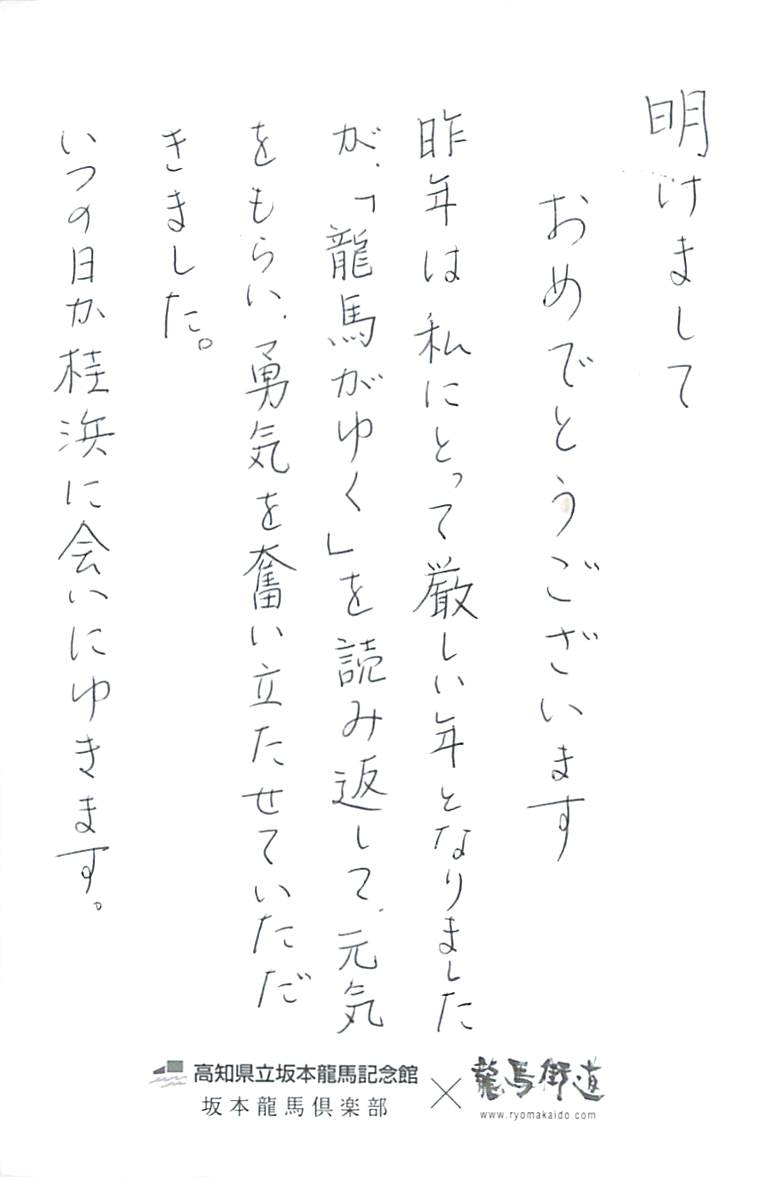 明けまして
おめでとうございます
昨年は私にとって厳しい年となりました
が、「龍馬がゆく」を読み返して、元気
をもらい、勇気を奮い立たせていただ
きました。
いつの日か桂浜に会いにゆきます。
高知県立坂本龍馬記念館
坂本龍馬倶楽部
×
龍馬街道
www.ryomakaido.com